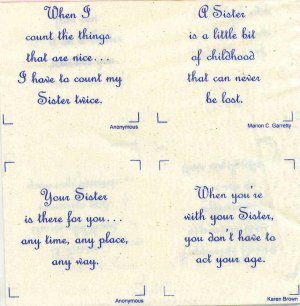 When I
count the things
that are nice...
I have to count my
Sister twice.
Anonymous
A Sister
is a little bit
of childhood
that can never
be lost.
Marion C. Garretty
Your Sister
is there for you...
any time, any place,
any way.
Anonymous
When you're
with your Sister,
you don't have to
act your age.
Karen Brown